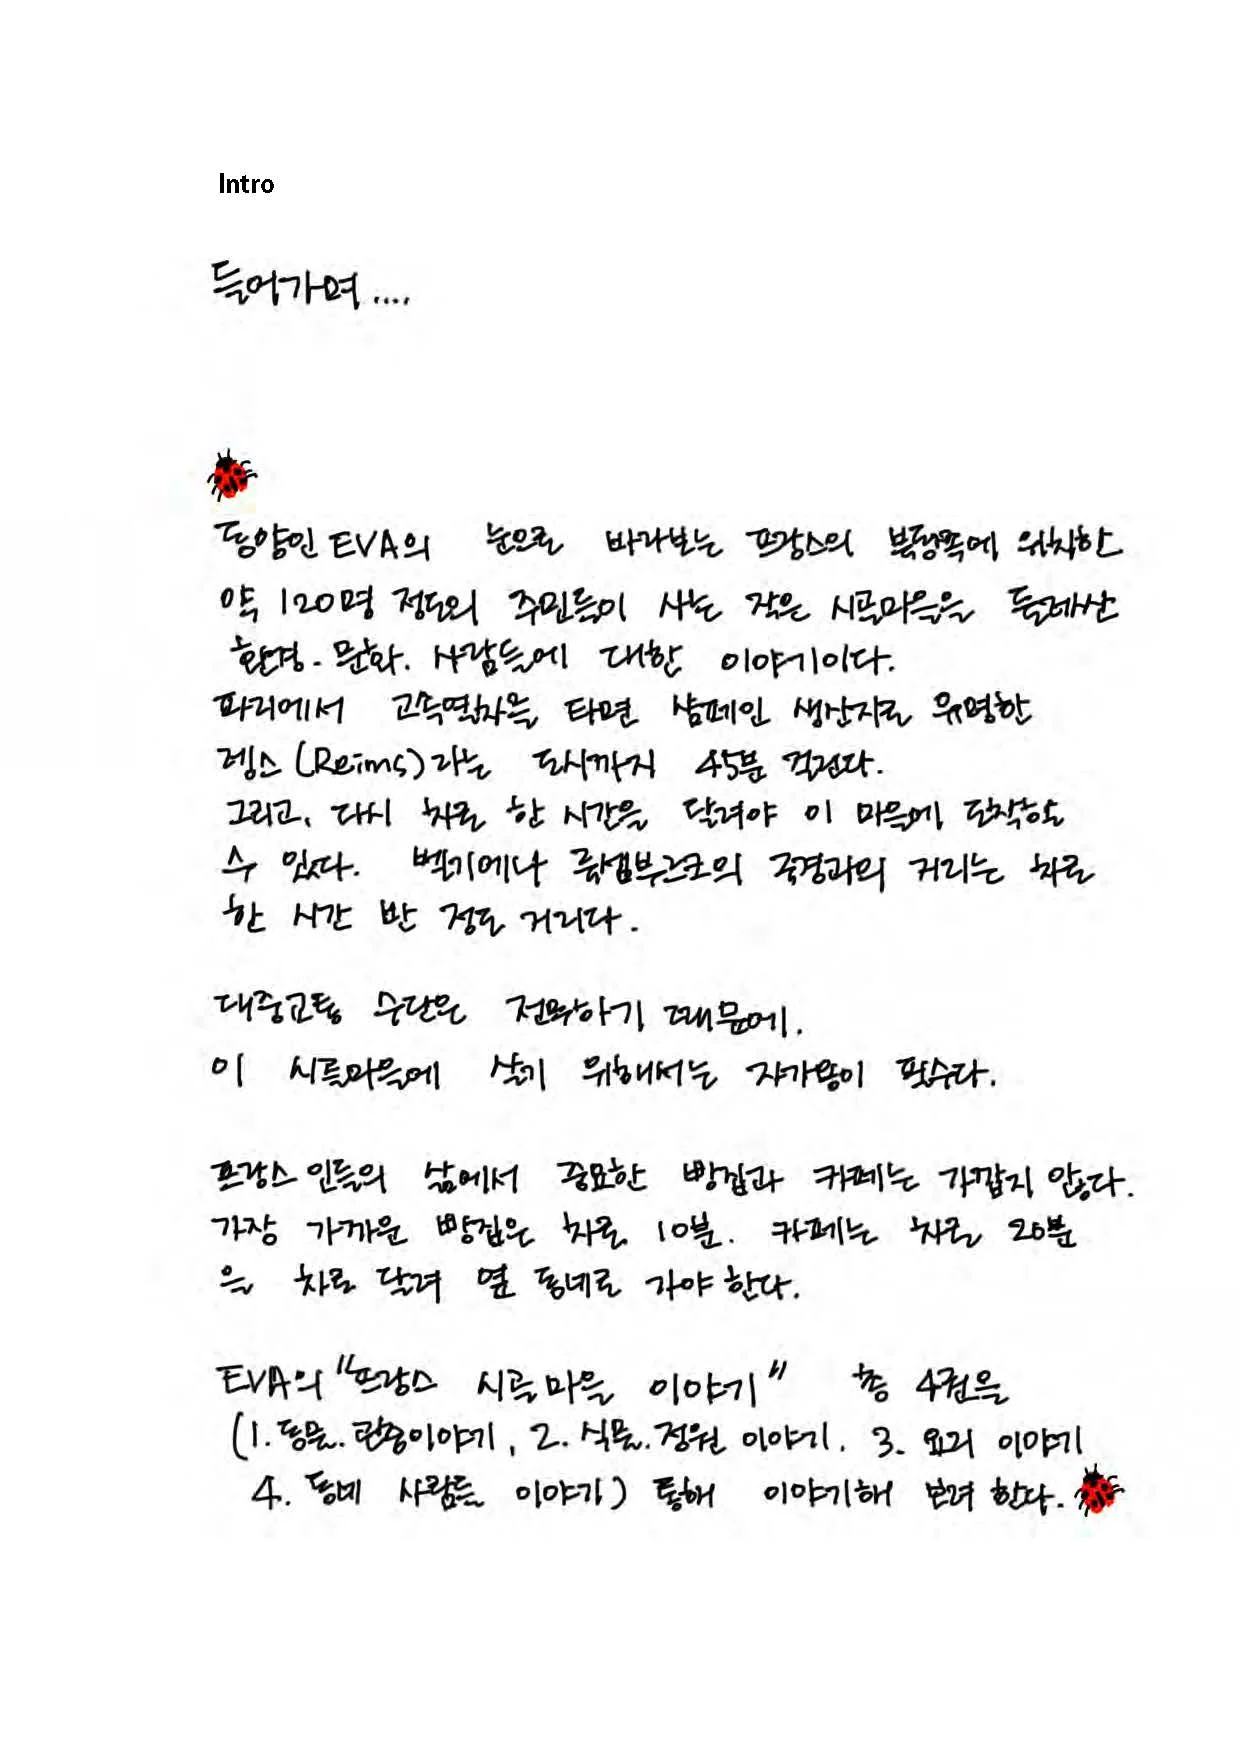 Intro
들어가며....
동양인 EVA의 눈으로 바라보는 프랑스의 북동쪽에 위치한
약 120명 정도의 주민들이 사는 작은 시골마을을 둘레싼
환경. 문화. 사람들에 대한 이야기이다.
파리에서 고속열차를 타면 샴페인 생산지로 유명한
렝스(Reims)라는 도시까지 45분 걸린다.
그리고, 다시 차로 한 시간을 달려야 이 마을에 도착할
수 있다. 벨기에나 룩셈부르크의 국경과의 거리는 차로
한 시간 반 정도 거리다.
대중교통 수단은 전무하기 때문에.
이 시골마을에 살기 위해서는 자가용이 필수다.
프랑스인들의 삶에서 중요한 빵집과 카페는 가깝지 않다.
가장 가까운 빵집은 차로 10분. 카페는 차로 20분
을 차로 달려 옆 동네로 가야 한다.
EVA의 "프랑스 시골마을 이야기" 총 4권을
(1. 동물.곤충이야기, 2. 식물.정원 이야기. 3. 요리 이야기
4. 동네 사람들 이야기) 통해 이야기해 보려 한다.